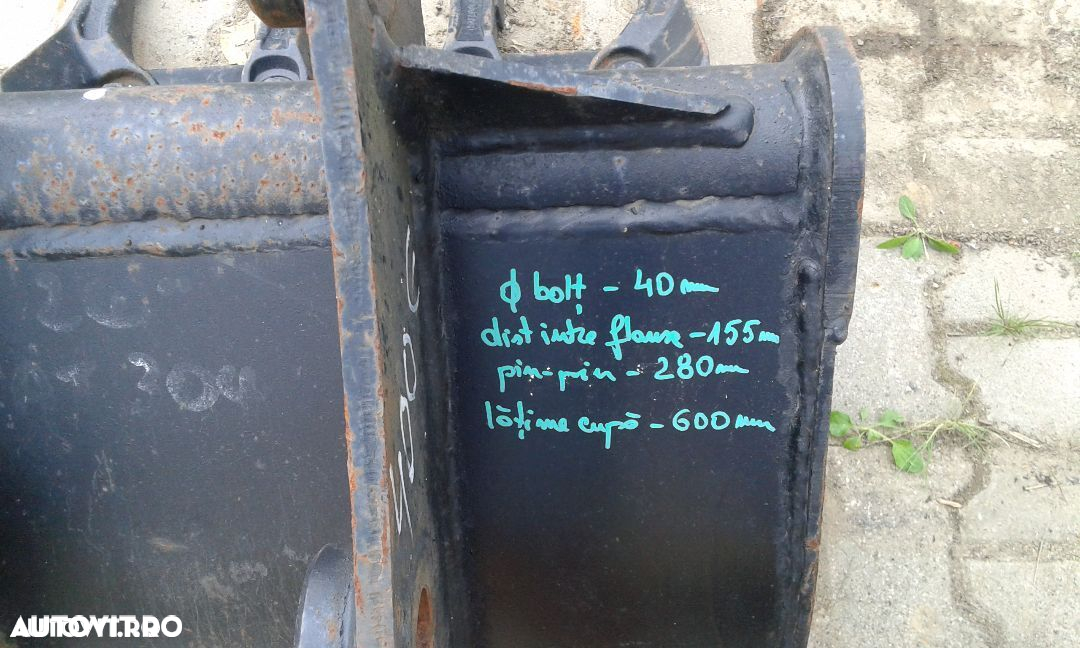 ϕ bolț - 40 mm
dist intre flanse - 155 m
pin-pin - 280 mm
lățime cupă - 600 mm
AUTOVIT.RO